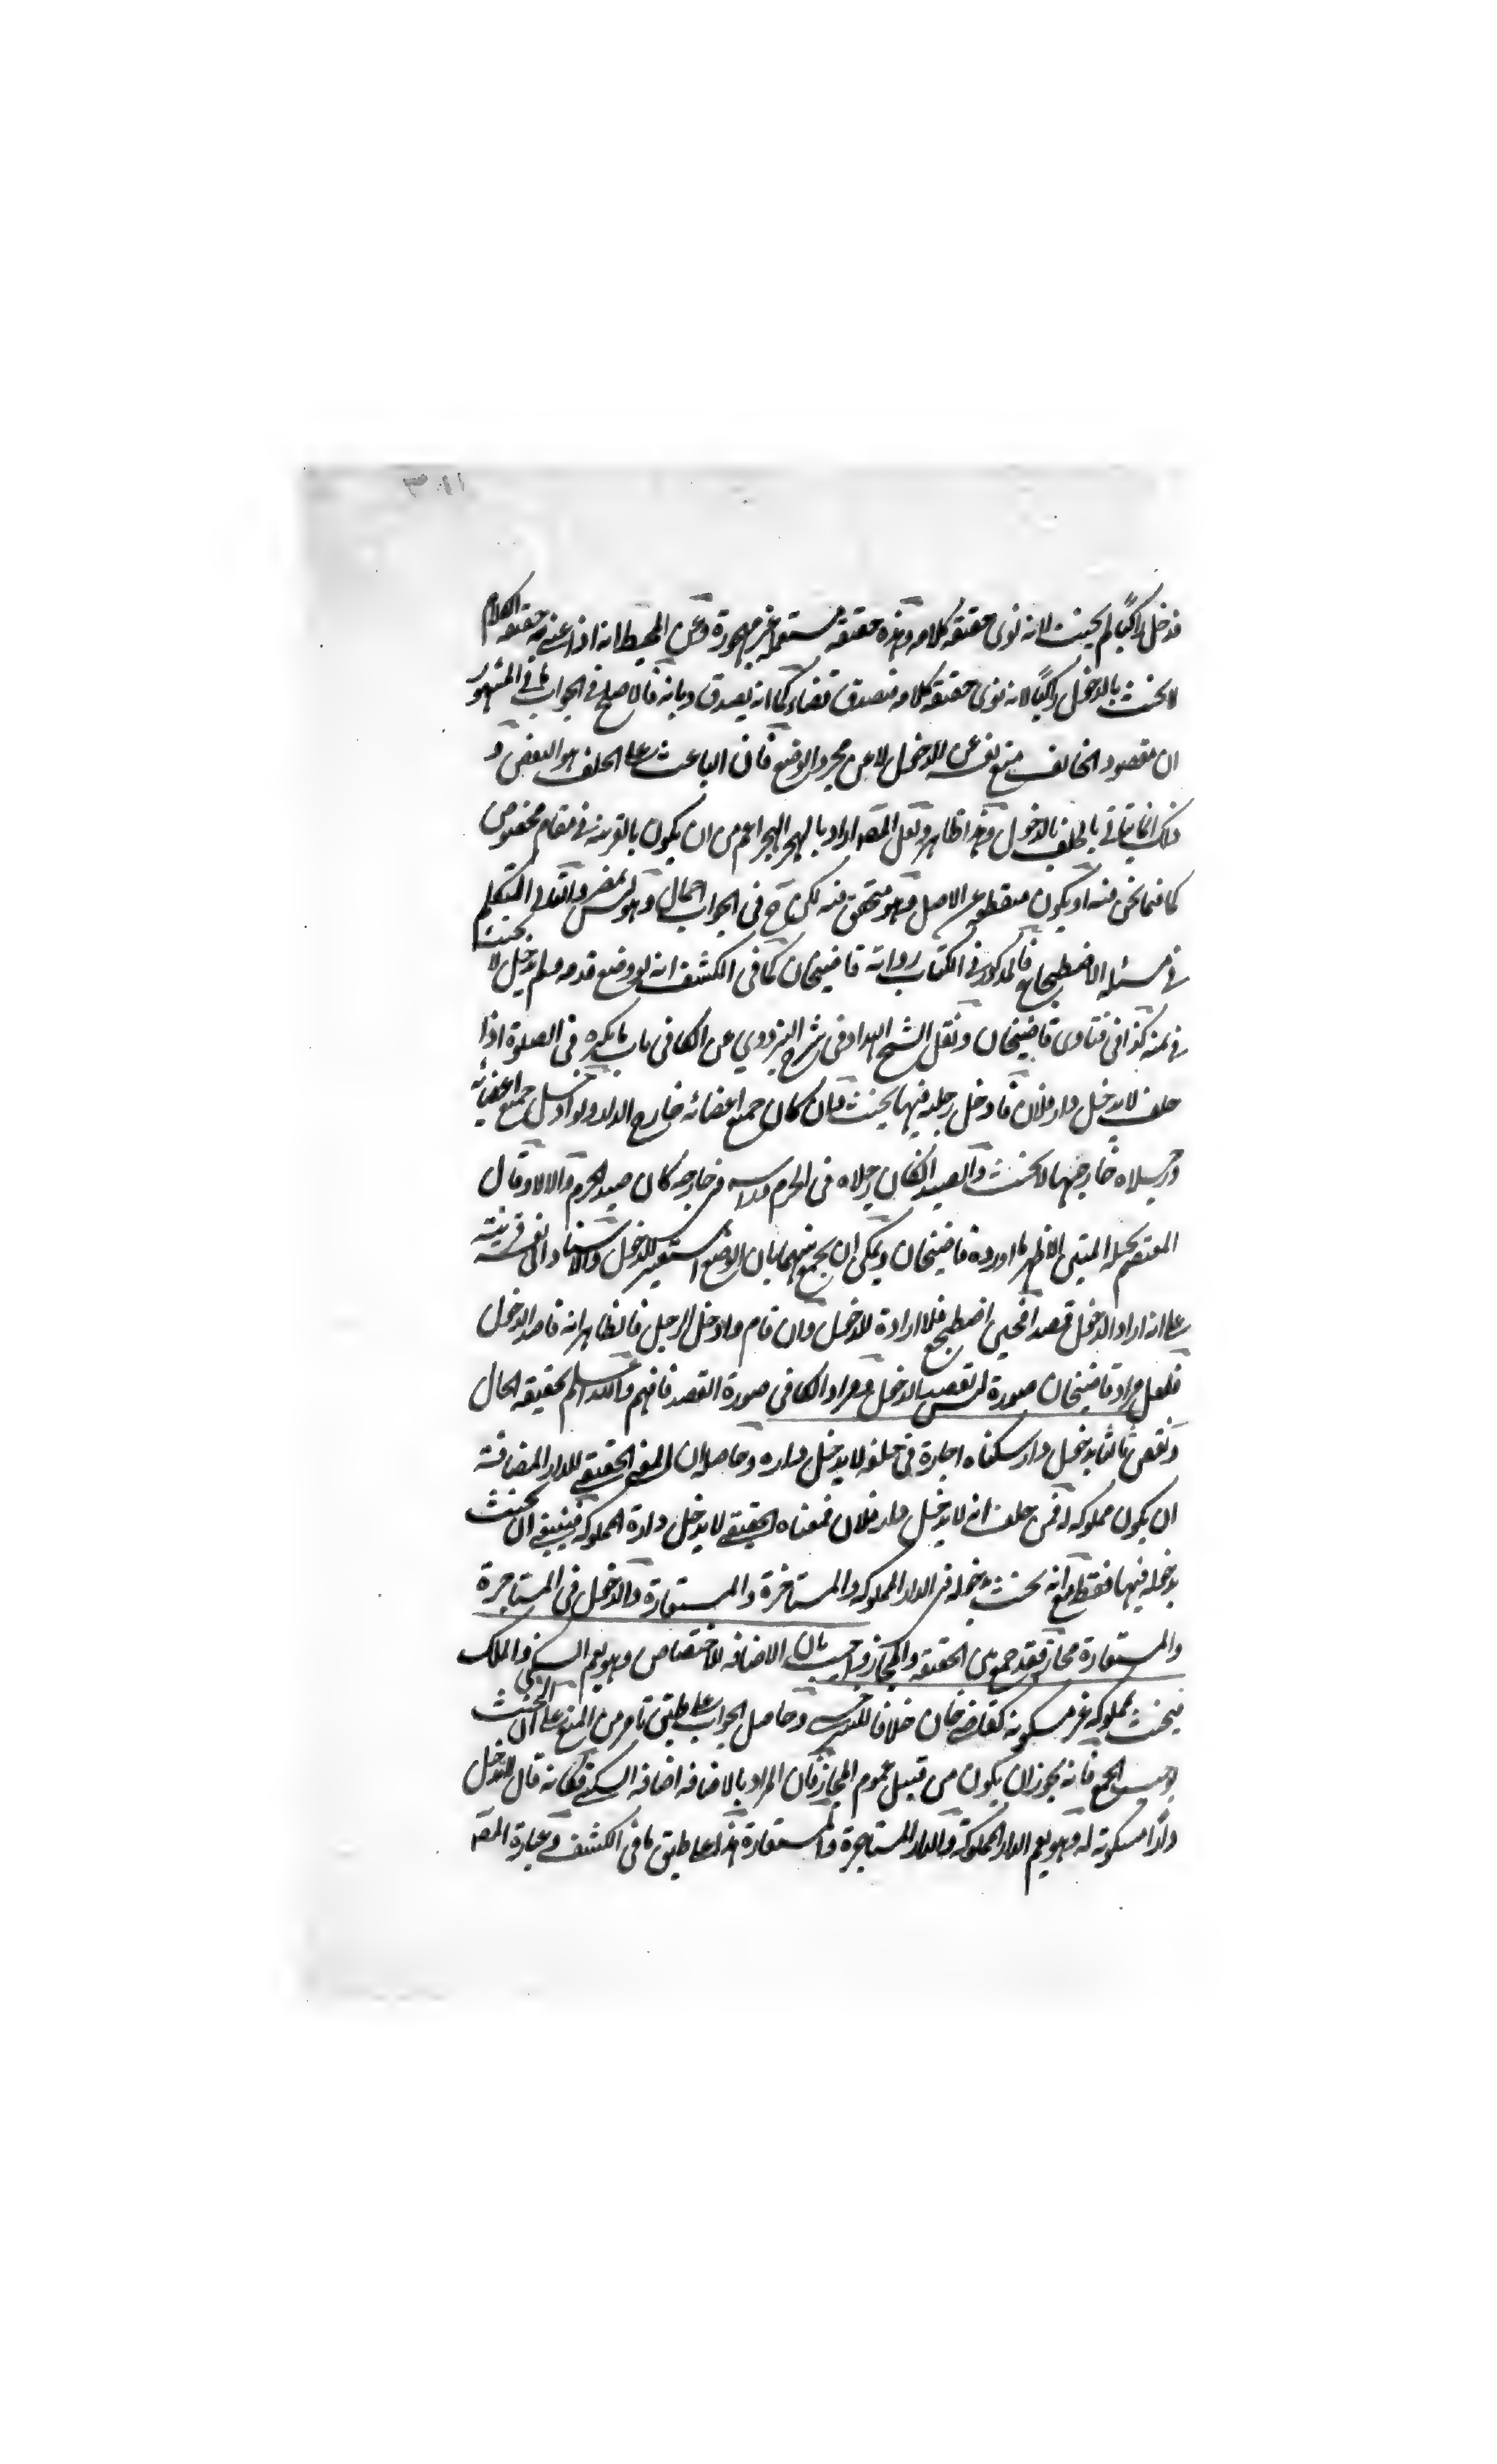 ٣١١
فدخل راكبا لم يحنث لانه نوى حقيقة كلامه وهذه حقيقة مستعملة غير مهجورة وعن المحيط انه اذا عنى به حقيقة الكلام
لا يحنث بالدخول راكبا لانه نوى حقيقة كلامه فتصدق قضاء كما انه يصدق ديانة فالاصح في الجواب ما في المشهور
ان مقصود الحالف منع نفسه عن الدخول لا عن مجرد الوضع فان الباعث على الحلف هو البغض و
ذلك انما يتأتى بالحلف بالدخول وهذا ظاهر ولعل المصـ اراد بالهجر الهجر اعم من ان يكون بالقرينة في مقام مخصوص
كما فيما نحن فيه او يكون منقطع عن الاصل وهو متحقق فيه لكن ح في الجواب اجمال وهو ليس بمضر واتفاق المتكلم
في مسئلة الاضطجاع فالمذكور في الكتاب رواية قاضيخان كما في الكشف انه لو وضع قدمه ولم يدخل لا يحنث
في يمينه كذا في فتاوى قاضيخان ونقل الشيخ الهداد في شرح البزدوي عن الكافي باب ما يكره في الصلوة اذا
حلف لا يدخل دار فلان فادخل رجليه فيها يحنث وان كان جميع اعضائه خارج الدار ولو ادخل جميع اعضائه
ورجلاه خارجها لا يحنث والصيد ان كان رجلاه في الحرم وراسه في خارجه كان صيد الحرم والا لا وقال
المعتصم بحبله المتين الاظهر ما اورده قاضيخان ويمكن ان يجمع بينهما بان الوضع استعير للدخول والاسناد الى نفسه قرينة
على انه اراد الدخول قصدا فحين اضطجع فلا ارادة للدخول وان قام وادخل الرجل فالظاهر انه قاصد الدخول
فلعل مراد قاضيخان صورة ليس بقصد الدخول ومراد الكافي صورة القصد فافهم والله اعلم بحقيقة الحال
ونقض ثالثا بدخول دار سكناه اجارة في حلفه لا يدخل داره وحاصله ان المعنى الحقيقي للدار المضافة
ان يكون مملوكة له فمن حلف انه لا يدخل دار فلان فمعناه الحقيقي لا يدخل داره المملوكة فينبغي ان يحنث
بدخوله فيها فقط مع انه يحنث بدخوله في الدار المملوكة والمستاجرة والمستعارة والدخول في المستاجرة
والمستعارة مجاز فقد جمع بين الحقيقة والمجاز واجيب بان الاضافة للاختصاص وهو يعم السكنى والملك
فيحنث بمملوكة غير مسكونة كقاضي خان خلافا للسرخسي وحاصل الجواب على طبق ما مر من المنع على ان الحنث
يوجب الجمع فانه يجوز ان يكون من قبيل عموم المجاز فان المراد بالاضافة اضافة السكنى فكانه قال لا يدخل
دارا مسكونة له وهو يعم الدار المملوكة والدار المستاجرة والمستعارة هذا على طبق ما في الكشف وعبارة المصـ